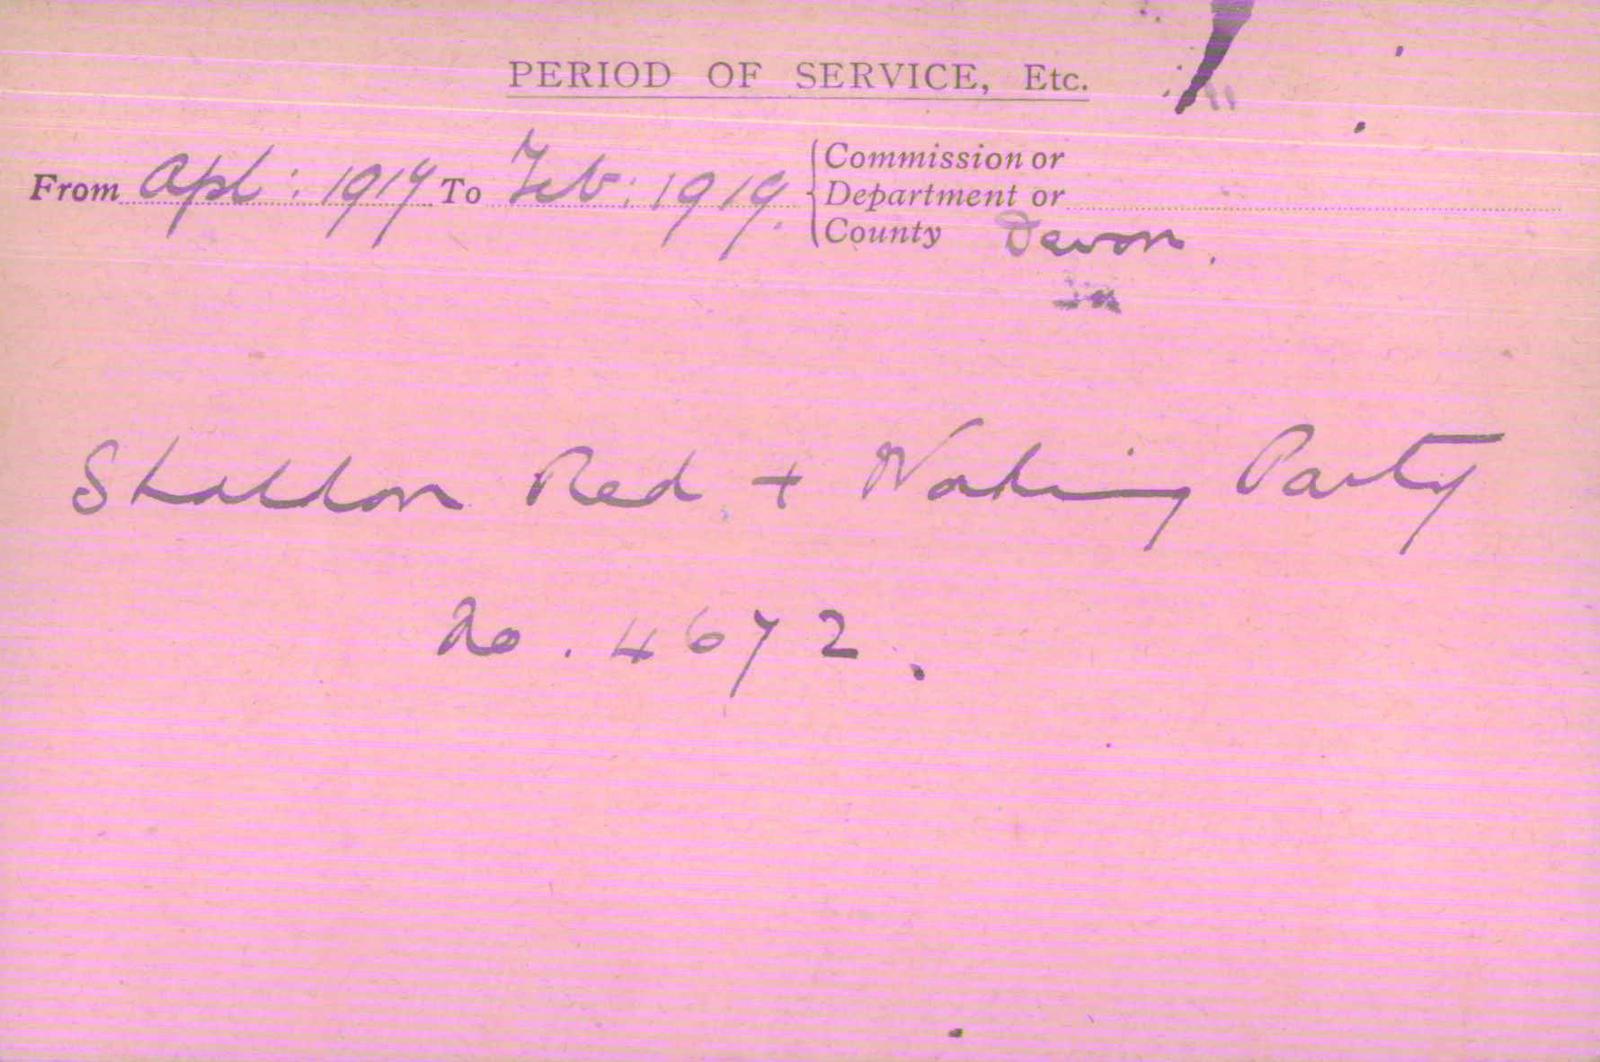 PERIOD OF SERVICE, Etc.
From Apl: 1917 To Feb: 1919. Commission or
Department or
County Devon.
Shaldon Red + Working Party
No. 4672.